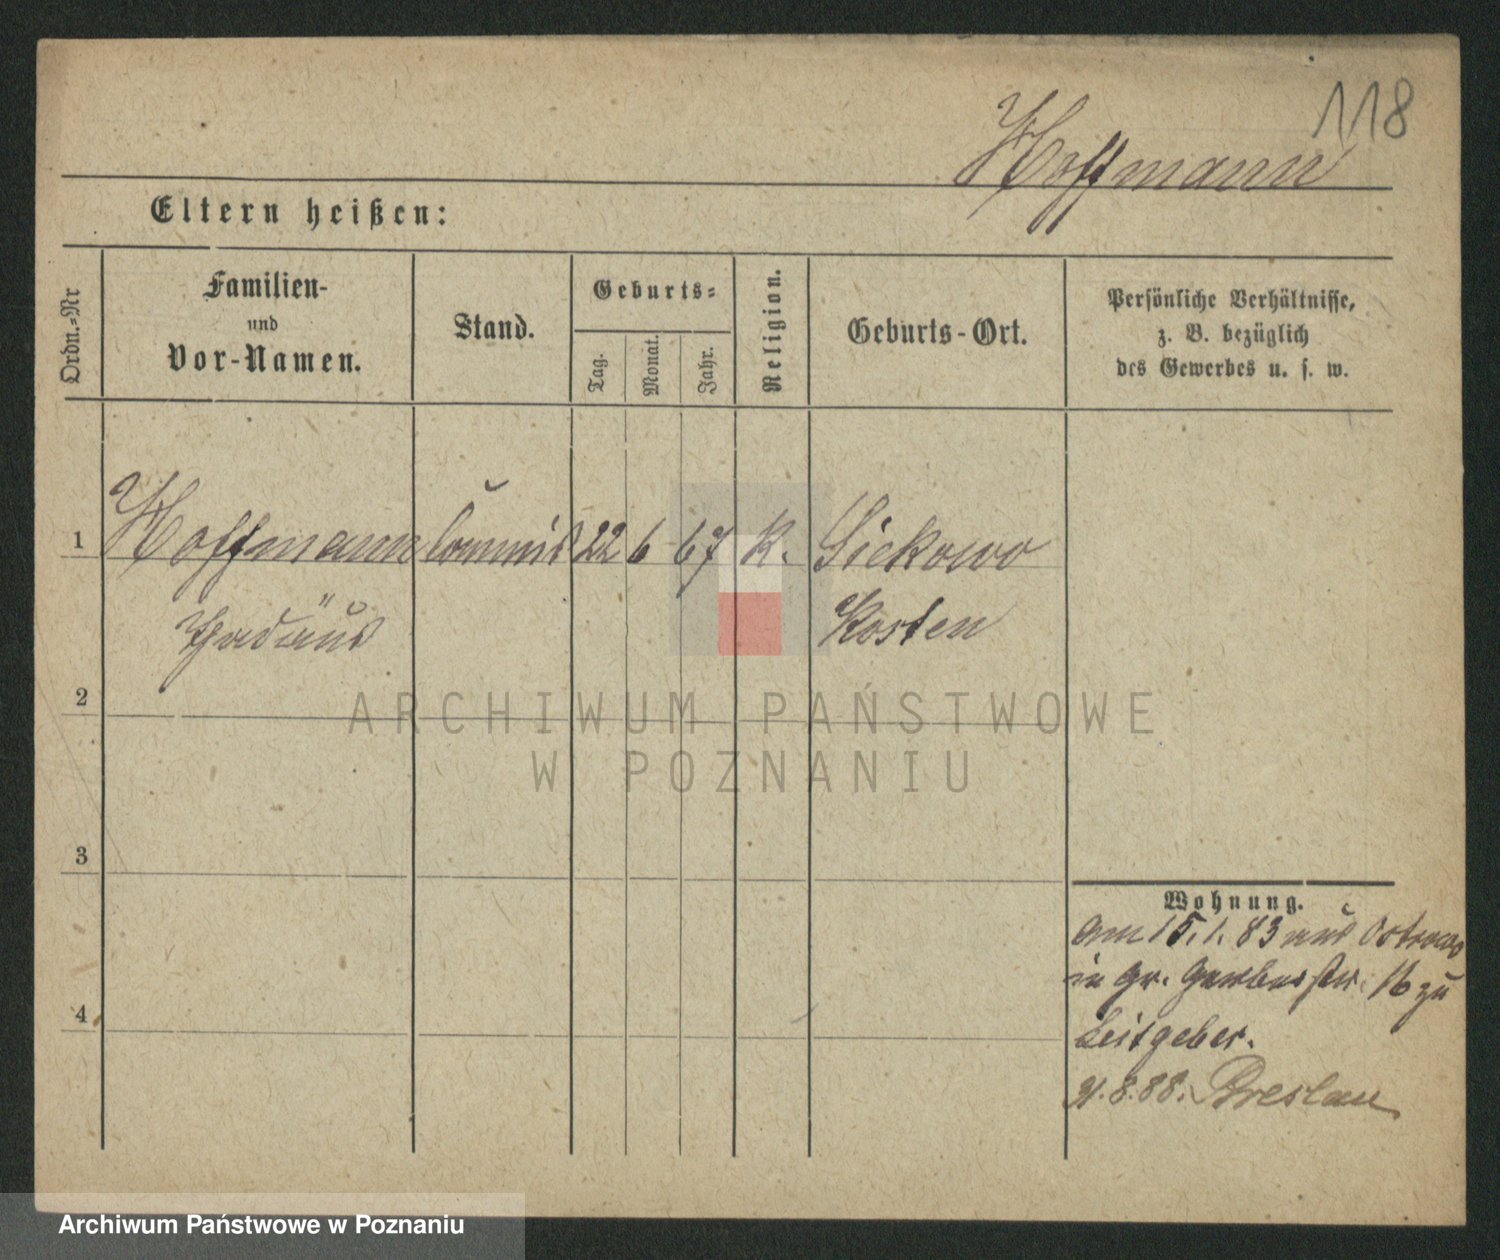 118
Hoffmann
Eltern heißen:
Ordn.-Nr
Familien-
und
Vor-Namen.
Stand.
Geburts-
Tag.
Monat.
Jahr.
Religion.
Geburts-Ort.
Persönliche Verhältnisse,
z. B. bezüglich
des Gewerbes u. s. w.
1 Hoffmann Commis 22 6 67 K. Siekowo
Thadäus Kosten
2
ARCHIWUM PAŃSTWOWE
W POZNANIU
3
Wohnung.
am 15.1.83 aus Ostrowo
in Gr. Gerberstr. 16 zu
Leitgeber.
4
8.88. Breslau
Archiwum Państwowe w Poznaniu